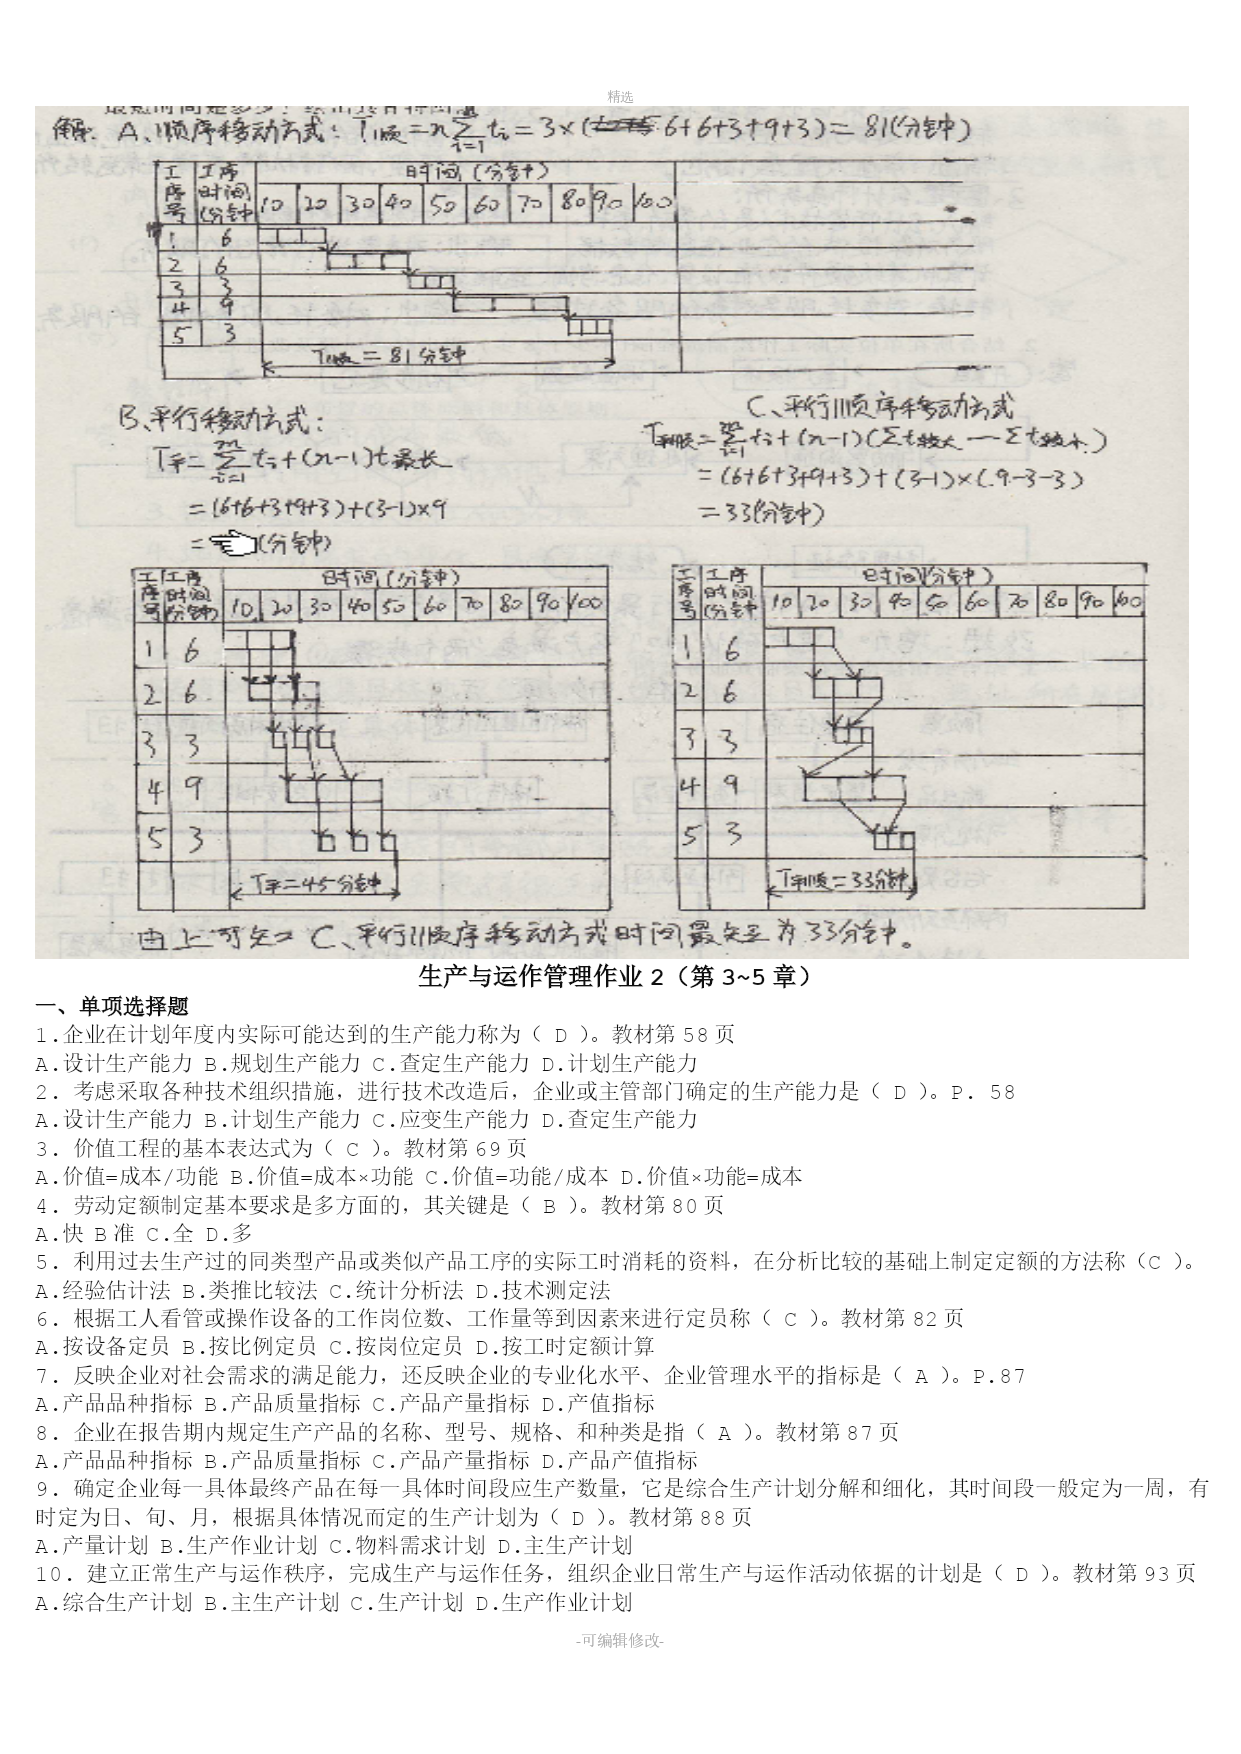 精选
解: A、顺序移动方式: T顺=n∑ti=3×(6+6+3+9+3)=81(分钟)
m
i=1
工序号 工序时间(分钟 时间(分钟)
10 20 30 40 50 60 70 80 90 100
1 6
2 6
3 3
4 9
5 3
T顺=81分钟
B、平行移动方式:
T平=∑ti+(n-1)t最长
m
i=1
=(6+6+3+9+3)+(3-1)×9
= (分钟)
C、平行顺序移动方式
T平顺=∑ti+(n-1)(∑t较大-∑t较小)
m
i=1
=(6+6+3+9+3)+(3-1)×(9-3-3)
=33(分钟)
工序号 工序时间(分钟) 时间(分钟)
10 20 30 40 50 60 70 80 90 100
1 6
2 6
3 3
4 9
5 3
T平=45分钟
工序号 工序时间(分钟 时间(分钟)
10 20 30 40 50 60 70 80 90 100
1 6
2 6
3 3
4 9
5 3
T平顺=33分钟
由上可知 C、平行顺序移动方式时间最短为33分钟。
生产与运作管理作业 2（第 3~5 章）
一、单项选择题
1.企业在计划年度内实际可能达到的生产能力称为（ D ）。教材第 58 页
A.设计生产能力 B.规划生产能力 C.查定生产能力 D.计划生产能力
2. 考虑采取各种技术组织措施，进行技术改造后，企业或主管部门确定的生产能力是（ D ）。P. 58
A.设计生产能力 B.计划生产能力 C.应变生产能力 D.查定生产能力
3. 价值工程的基本表达式为（ C ）。教材第 69 页
A.价值=成本/功能 B.价值=成本×功能 C.价值=功能/成本 D.价值×功能=成本
4. 劳动定额制定基本要求是多方面的，其关键是（ B ）。教材第 80 页
A.快 B 准 C.全 D.多
5. 利用过去生产过的同类型产品或类似产品工序的实际工时消耗的资料，在分析比较的基础上制定定额的方法称（C ）。
A.经验估计法 B.类推比较法 C.统计分析法 D.技术测定法
6. 根据工人看管或操作设备的工作岗位数、工作量等到因素来进行定员称（ C ）。教材第 82 页
A.按设备定员 B.按比例定员 C.按岗位定员 D.按工时定额计算
7. 反映企业对社会需求的满足能力，还反映企业的专业化水平、企业管理水平的指标是（ A ）。P.87
A.产品品种指标 B.产品质量指标 C.产品产量指标 D.产值指标
8. 企业在报告期内规定生产产品的名称、型号、规格、和种类是指（ A ）。教材第 87 页
A.产品品种指标 B.产品质量指标 C.产品产量指标 D.产品产值指标
9. 确定企业每一具体最终产品在每一具体时间段应生产数量，它是综合生产计划分解和细化，其时间段一般定为一周，有
时定为日、旬、月，根据具体情况而定的生产计划为（ D ）。教材第 88 页
A.产量计划 B.生产作业计划 C.物料需求计划 D.主生产计划
10. 建立正常生产与运作秩序，完成生产与运作任务，组织企业日常生产与运作活动依据的计划是（ D ）。教材第 93 页
A.综合生产计划 B.主生产计划 C.生产计划 D.生产作业计划
-可编辑修改-